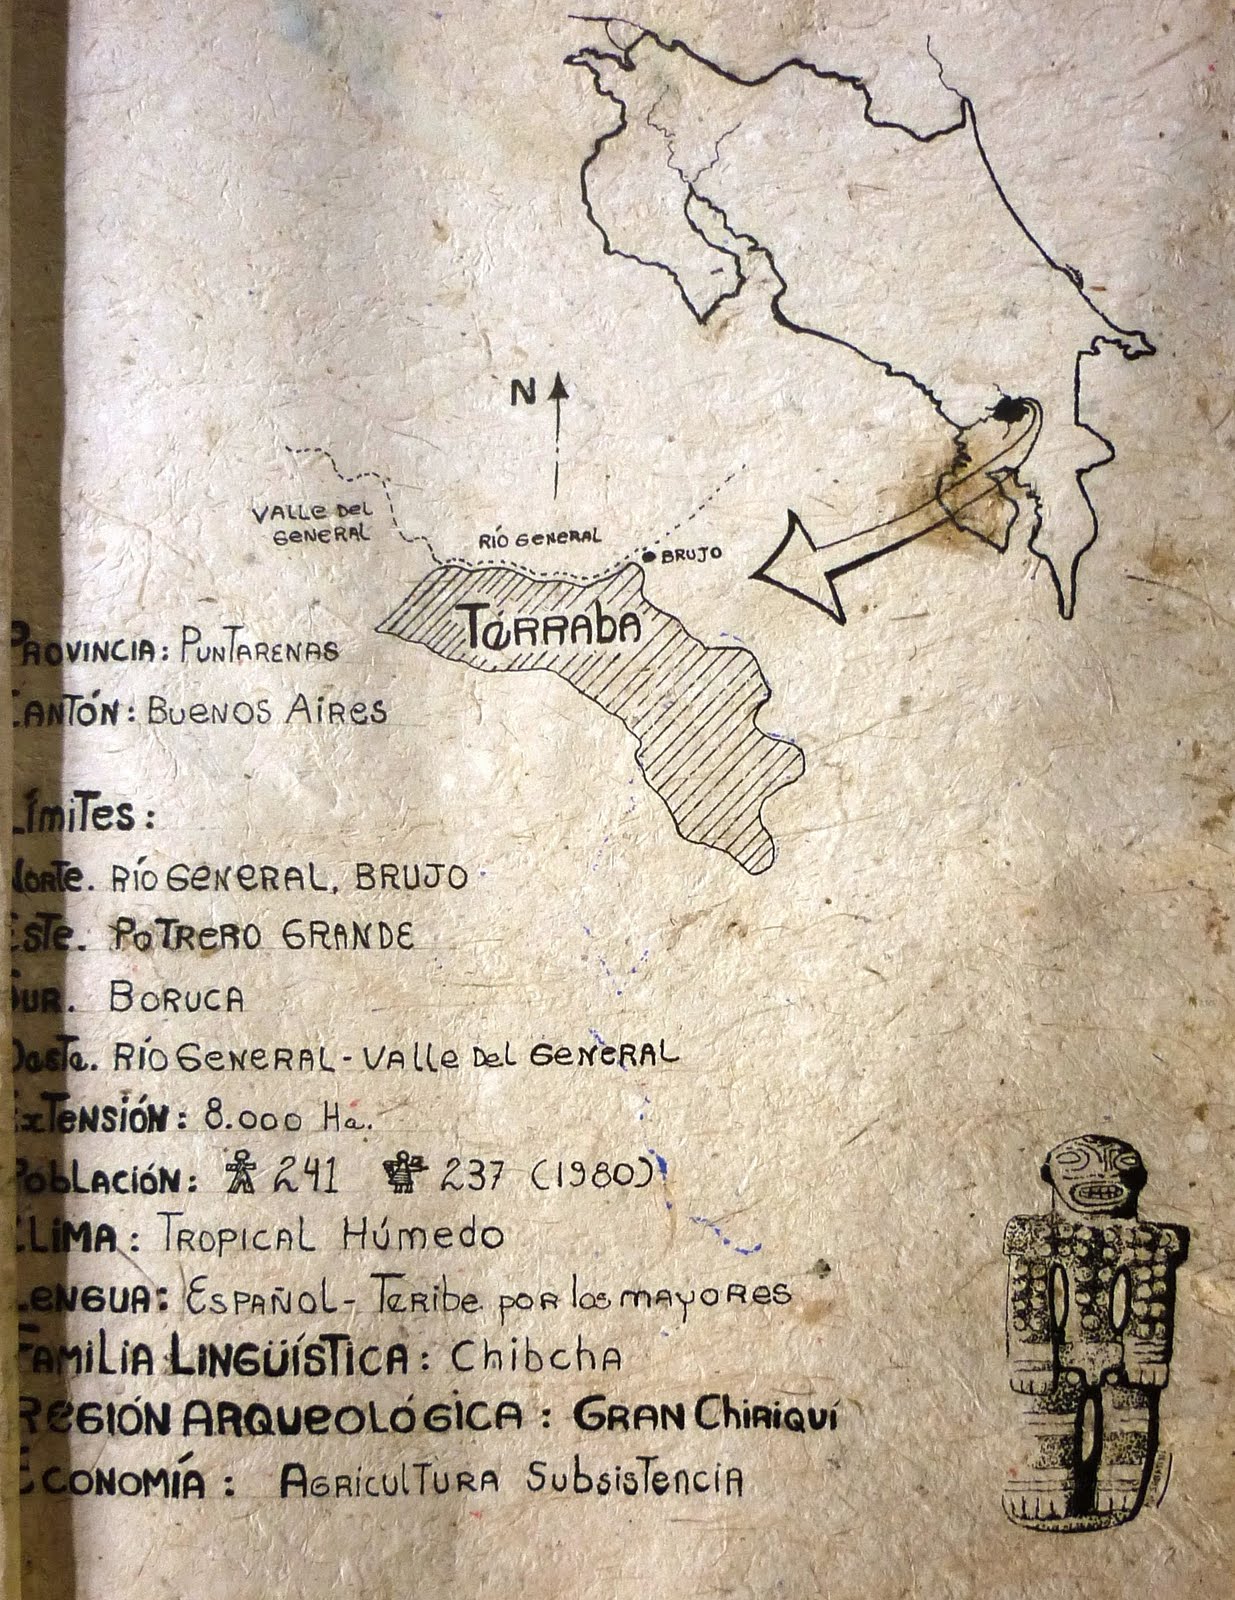 N
VALLE DEL
GENERAL
RÍO GENERAL
BRUJO
TÉRRABA
PROVINCIA: PUNTARENAS
CANTÓN: BUENOS AIRES
LÍMITES:
NORTE. RÍO GENERAL, BRUJO
ESTE. POTRERO GRANDE
SUR. BORUCA
OESTE. RÍO GENERAL - VALLE DEL GENERAL
EXTENSIÓN: 8.000 Ha.
POBLACIÓN: 241 237 (1980)
CLIMA: TROPICAL HÚMEDO
LENGUA: ESPAÑOL - TERIBE por los mayores
FAMILIA LINGÜÍSTICA: Chibcha
REGIÓN ARQUEOLÓGICA: GRAN Chiriquí
ECONOMÍA: AGRICULTURA SUBSISTENCIA